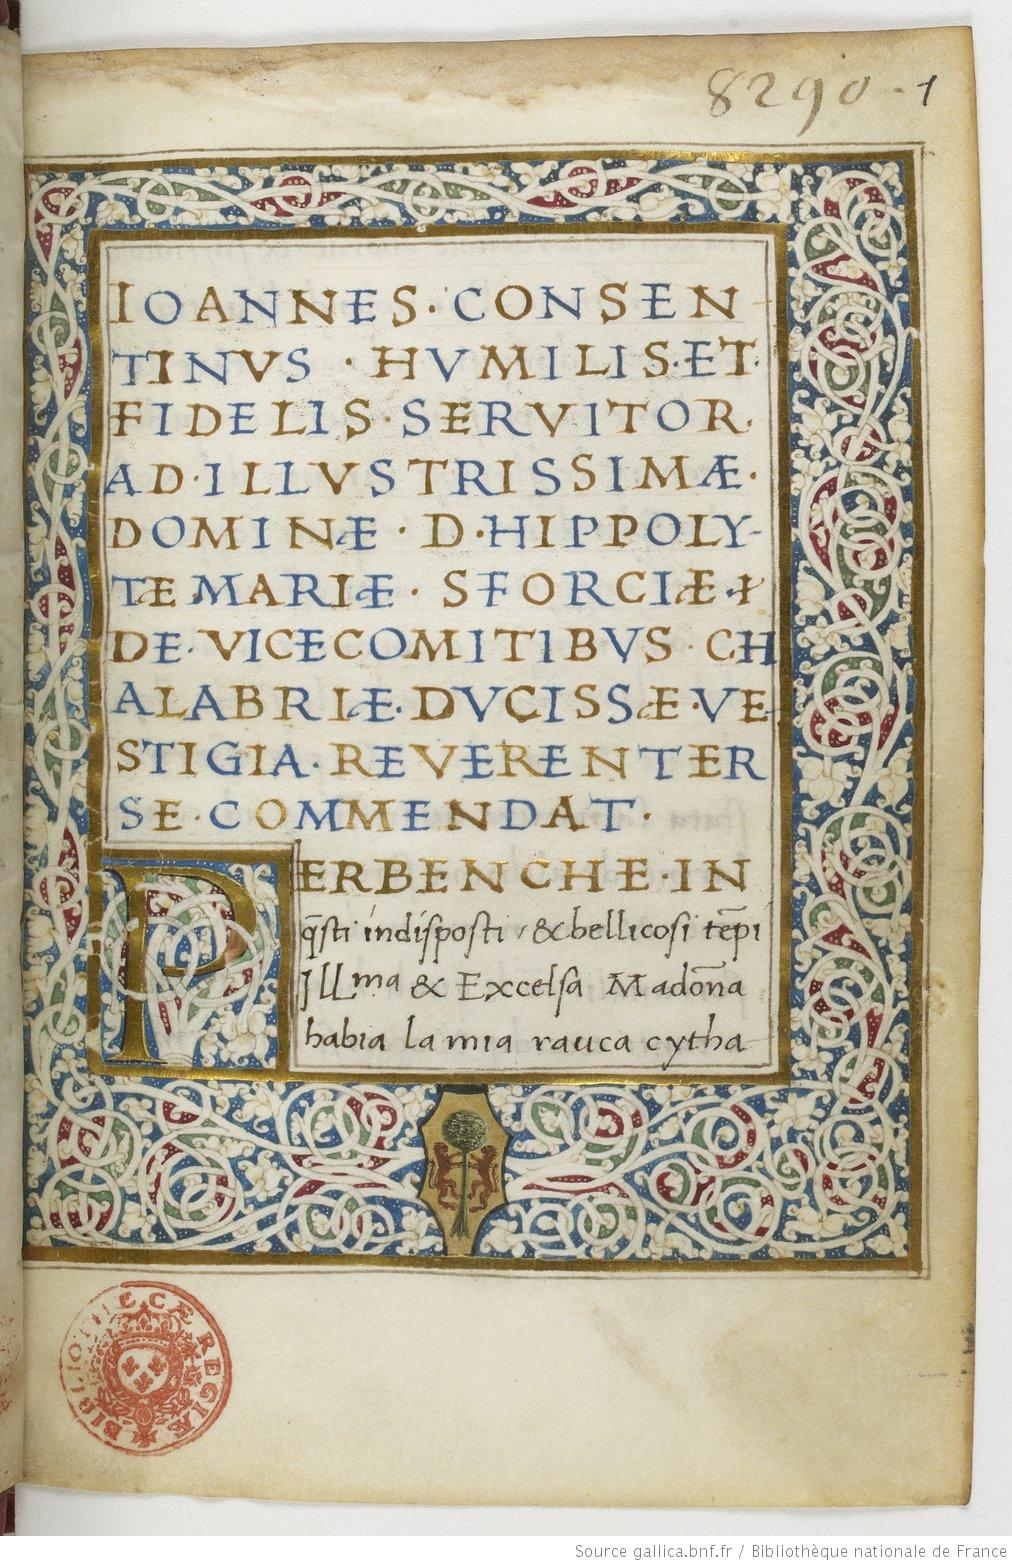 8290 · 1
IOANNES · CONSEN
TINVS · HVMILIS · ET ·
FIDELIS · SERVITOR ·
AD · ILLVSTRISSIMÆ ·
DOMINÆ · D · HIPPOLY-
TÆ MARIÆ · SFORCIÆ · &
DE · VICECOMITIBVS · CH
ALABRIÆ · DVCISSÆ · VE-
STIGIA · REVERENTER
SE · COMMENDAT ·
PERBENCHE · IN
q̄sti indisposti, & bellicosi tēpi
Illma & Excelsa Madōna
habia la mia rauca cytha-
BIBLIOTHECÆ REGIÆ
Source gallica.bnf.fr / Bibliothèque nationale de France